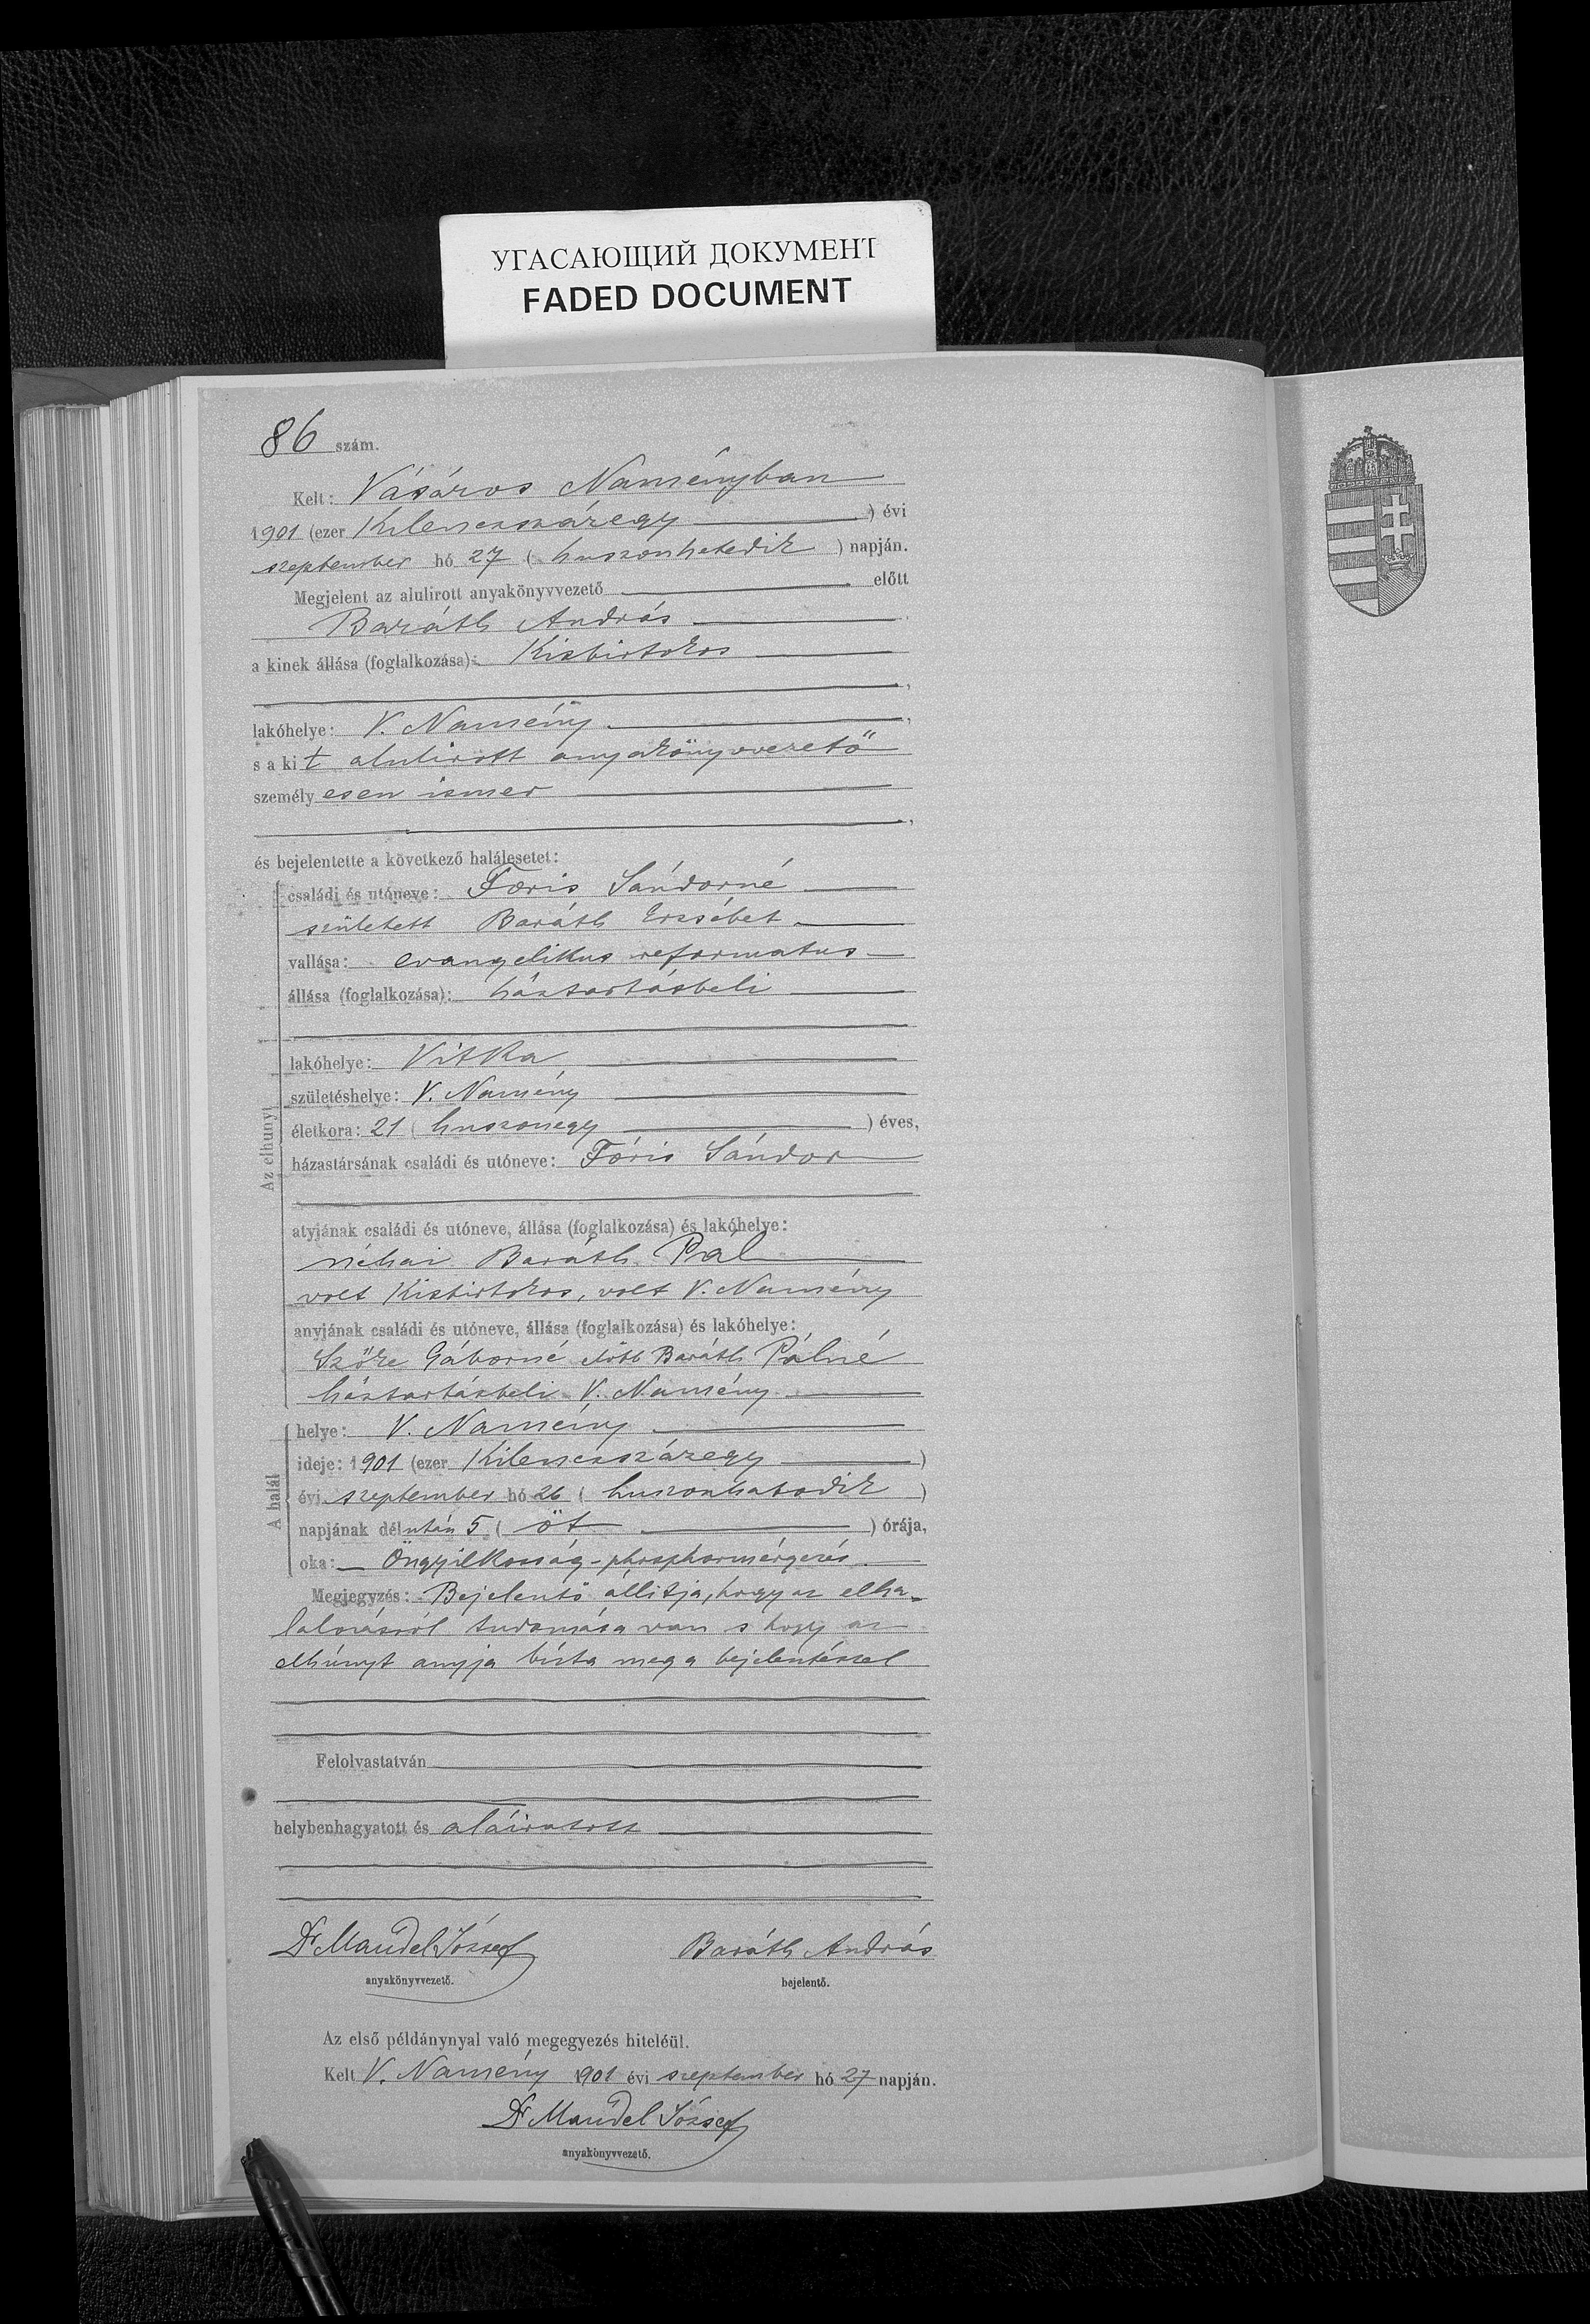 УГАСАЮЩИЙ ДОКУМЕНТ
FADED DOCUMENT
86 szám.
Kelt: Vásáros Naményban
1901 (ezer Kilenczszázegy ) évi
szeptember hó 27 ( huszonhetedik ) napján.
Megjelent az alulirott anyakönyvvezető előtt
Baráth András
a kinek állása (foglalkozása): Kisbirtokos
,
lakóhelye: V. Namény ,
s a kit alulirott anyakönyvvezető
személyesen ismer
,
és bejelentette a következő halálesetet:
Az elhunyt
családi és utóneve: Fóris Sándorné
született Baráth Erzsébet
vallása: evangelikus reformatus
állása (foglalkozása): háztartásbeli
lakóhelye: Vitka
születéshelye: V. Namény
életkora: 21 ( huszonegy ) éves,
házastársának családi és utóneve: Fóris Sándor
atyjának családi és utóneve, állása (foglalkozása) és lakóhelye:
néhai Baráth Pál
volt Kisbirtokos, volt V. Namény
anyjának családi és utóneve, állása (foglalkozása) és lakóhelye:
Szőke Gáborné előbb Baráth Pálné
háztartásbeli V. Namény
A halál
helye: V. Namény
ideje: 1901 (ezer Kilenczszázegy )
évi szeptember hó 26 ( huszonhatodik )
napjának délután 5 ( öt ) órája,
oka: Öngyilkosság - phosphormérgezés
Megjegyzés: Bejelentő állitja, hogy az elha-
lálozásról tudomása van s hogy az
elhúnyt anyja bízta meg a bejelentéssel
Felolvastatván
helybenhagyatott és aláiratott
Dr Mandel József Baráth András
anyakönyvvezető. bejelentő.
Az első példánynyal való megegyezés hiteléül.
Kelt V. Namény 1901 évi szeptember hó 27 napján.
Dr Mandel József
anyakönyvvezető.